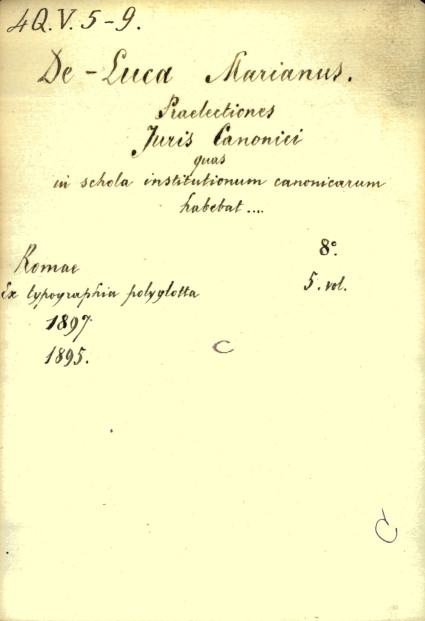 4Q.V.5-9.
De-Luca Marianus.
Praelectiones
Juris Canonici
quas
in schola institutionum canonicarum
habebat....
8°.
Romae
Ex typographia polyglotta
5. vol.
1897
1895.
C
C